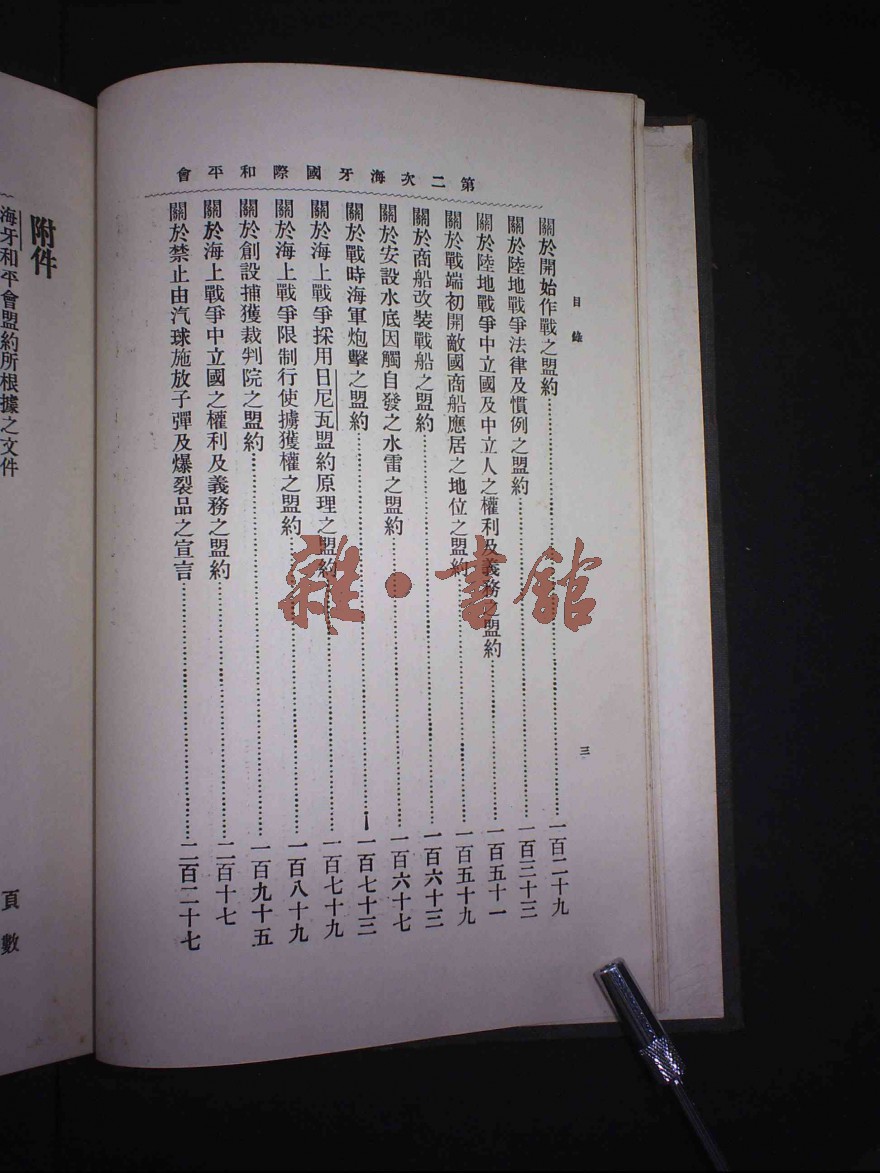 第二次海牙國際和平會
目錄
三
關於開始作戰之盟約……一百二十九
關於陸地戰爭法律及慣例之盟約……一百三十三
關於陸地戰爭中立國及中立人之權利及義務之盟約……一百五十一
關於戰端初開敵國商船應居之地位之盟約……一百五十九
關於商船改裝戰船之盟約……一百六十三
關於安設水底因觸自發之水雷之盟約……一百六十七
關於戰時海軍炮擊之盟約……一百七十三
關於海上戰爭採用日尼瓦盟約原理之盟約……一百七十九
關於海上戰爭限制行使擄獲權之盟約……一百八十九
關於創設捕獲裁判院之盟約……一百九十五
關於海上戰爭中立國之權利及義務之盟約……二百十七
關於禁止由汽球施放子彈及爆裂品之宣言……二百二十七
附件
頁數
海牙和平會盟約所根據之文件
雜·書館